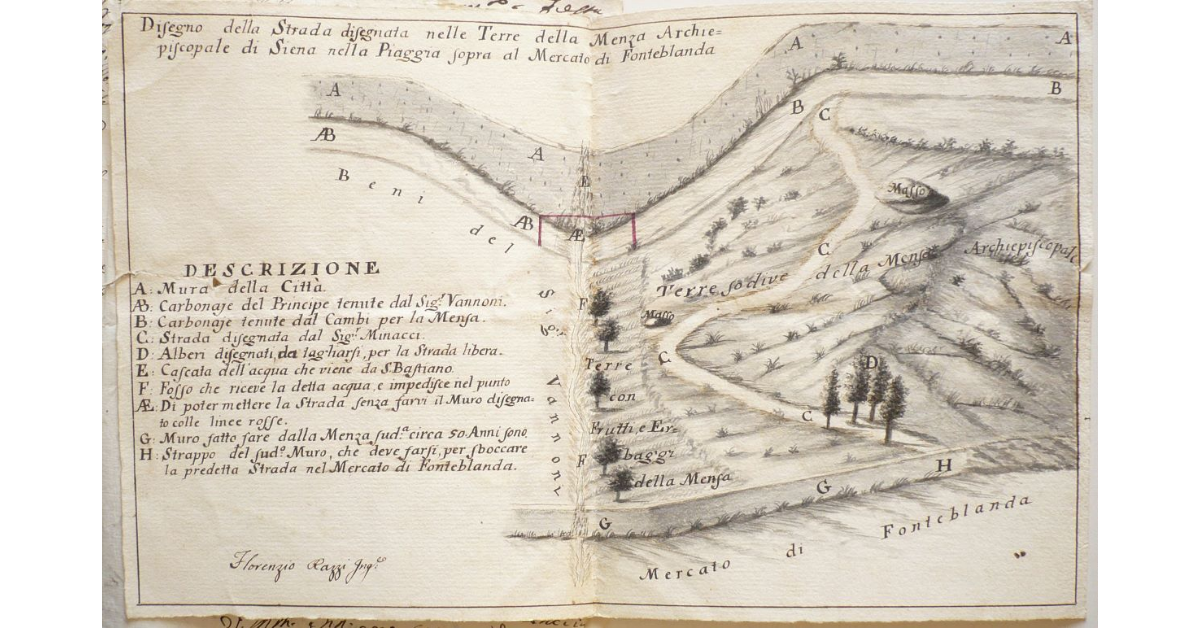 Disegno della Strada disegnata nelle Terre della Menza Archie=
piscopale di Siena nella Piaggia sopra al Mercato di Fonteblanda
A
A
A
B
AB
B
C
A
E
Beni del Sig.r Vannoni
Masso
AB
Æ
C
Archiepiscopale
DESCRIZIONE
A: Mura della Città.
AB: Carbonaje del Principe tenute dal Sig.r Vannoni.
B: Carbonaje tenute dal Cambi per la Mensa.
C: Strada disegnata dal Sig.r Minacci.
D: Alberi disegnati, da tagliarsi, per la Strada libera.
E: Cascata dell'acqua che viene da S. Bastiano.
F: Fosso che riceve la detta acqua, e impedisce nel punto
Æ: Di poter mettere la Strada senza farvi il Muro disegna=
to colle linee rosse.
G: Muro fatto fare dalla Menza sud.a circa 50 Anni sono.
H: Strappo del sud.o Muro, che deve farsi, per sboccare
la predetta Strada nel Mercato di Fonteblanda.
Terre sodive della Mensa
F
Masso
C
D
Terre
con
C
Frutti, e Er=
baggi
F
della Mensa
H
G
G
Mercato di Fonteblanda
Florenzio Razzi Ing.e